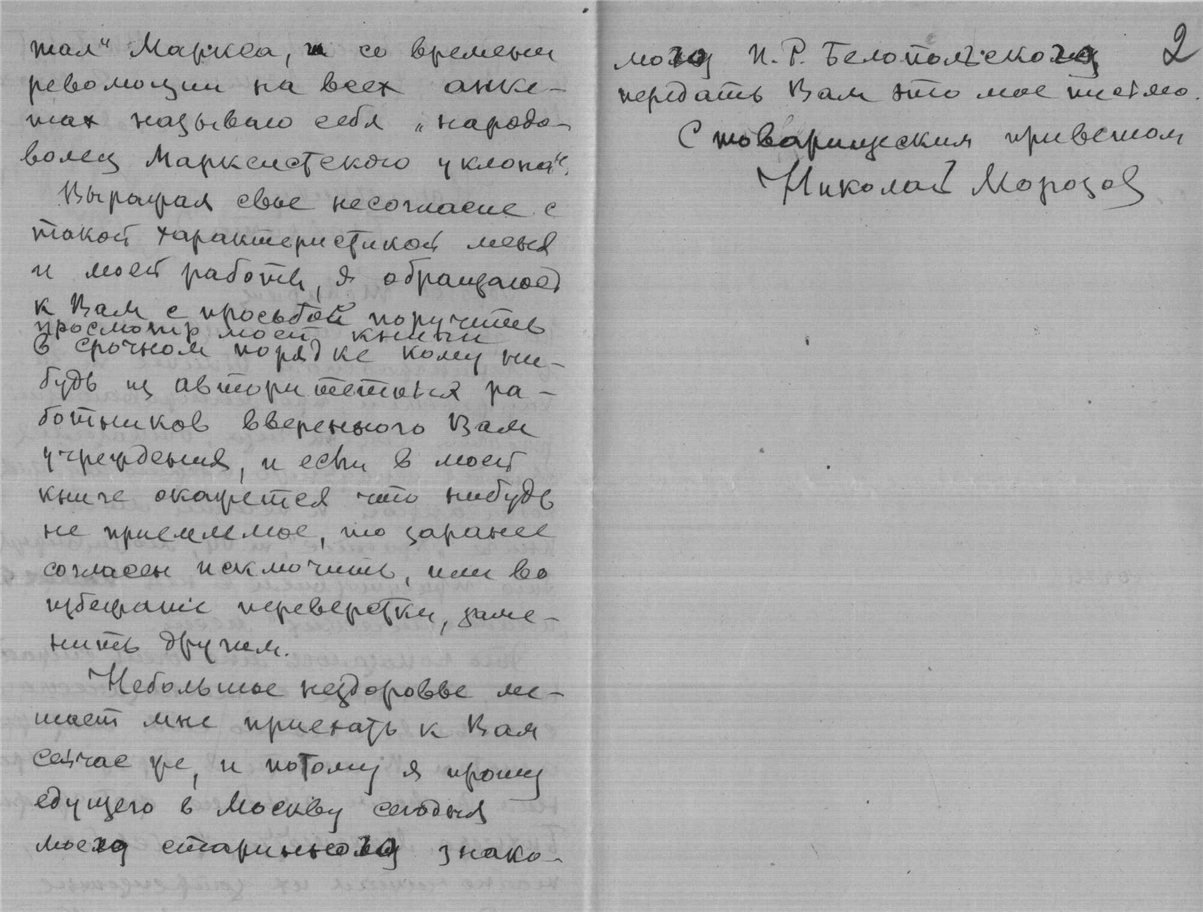 тал" Маркса, и со времени
революции на всех анке-
тах называю себя „народо-
волец Марксистского уклона".
Выражая свое несогласие с
такой характеристикой меня
и моей работы, я обращаюсь
к Вам с просьбой поручить
просмотр моей книги
в срочном порядке кому ни-
будь из авторитетных ра-
ботников вверенного Вам
учреждения, и если в моей
книге окажется что нибудь
не приемлемое, то заранее
согласен исключить, или во
избежание переверстки, заме-
нить другим.
Небольшое нездоровье ме-
шает мне приехать к Вам
сейчас же, и потому я прошу
едущего в Москву сегодня
моего старинного знако-
2
мого И. Р. Белопольского
передать Вам это мое письмо.
С товарищеским приветом
Николай Морозов